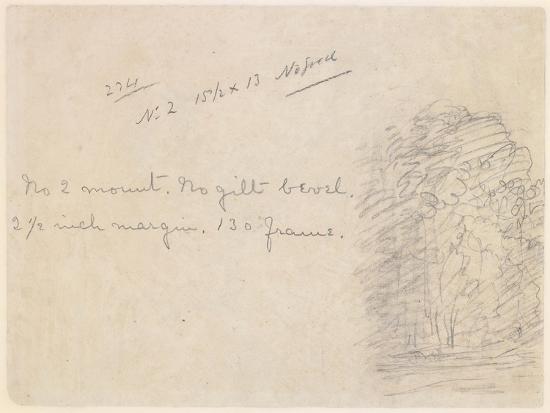 274
No 2 15 1/2 x 13
No 2 mount. No gilt bevel.
2 1/2 inch margin. 130 frame.